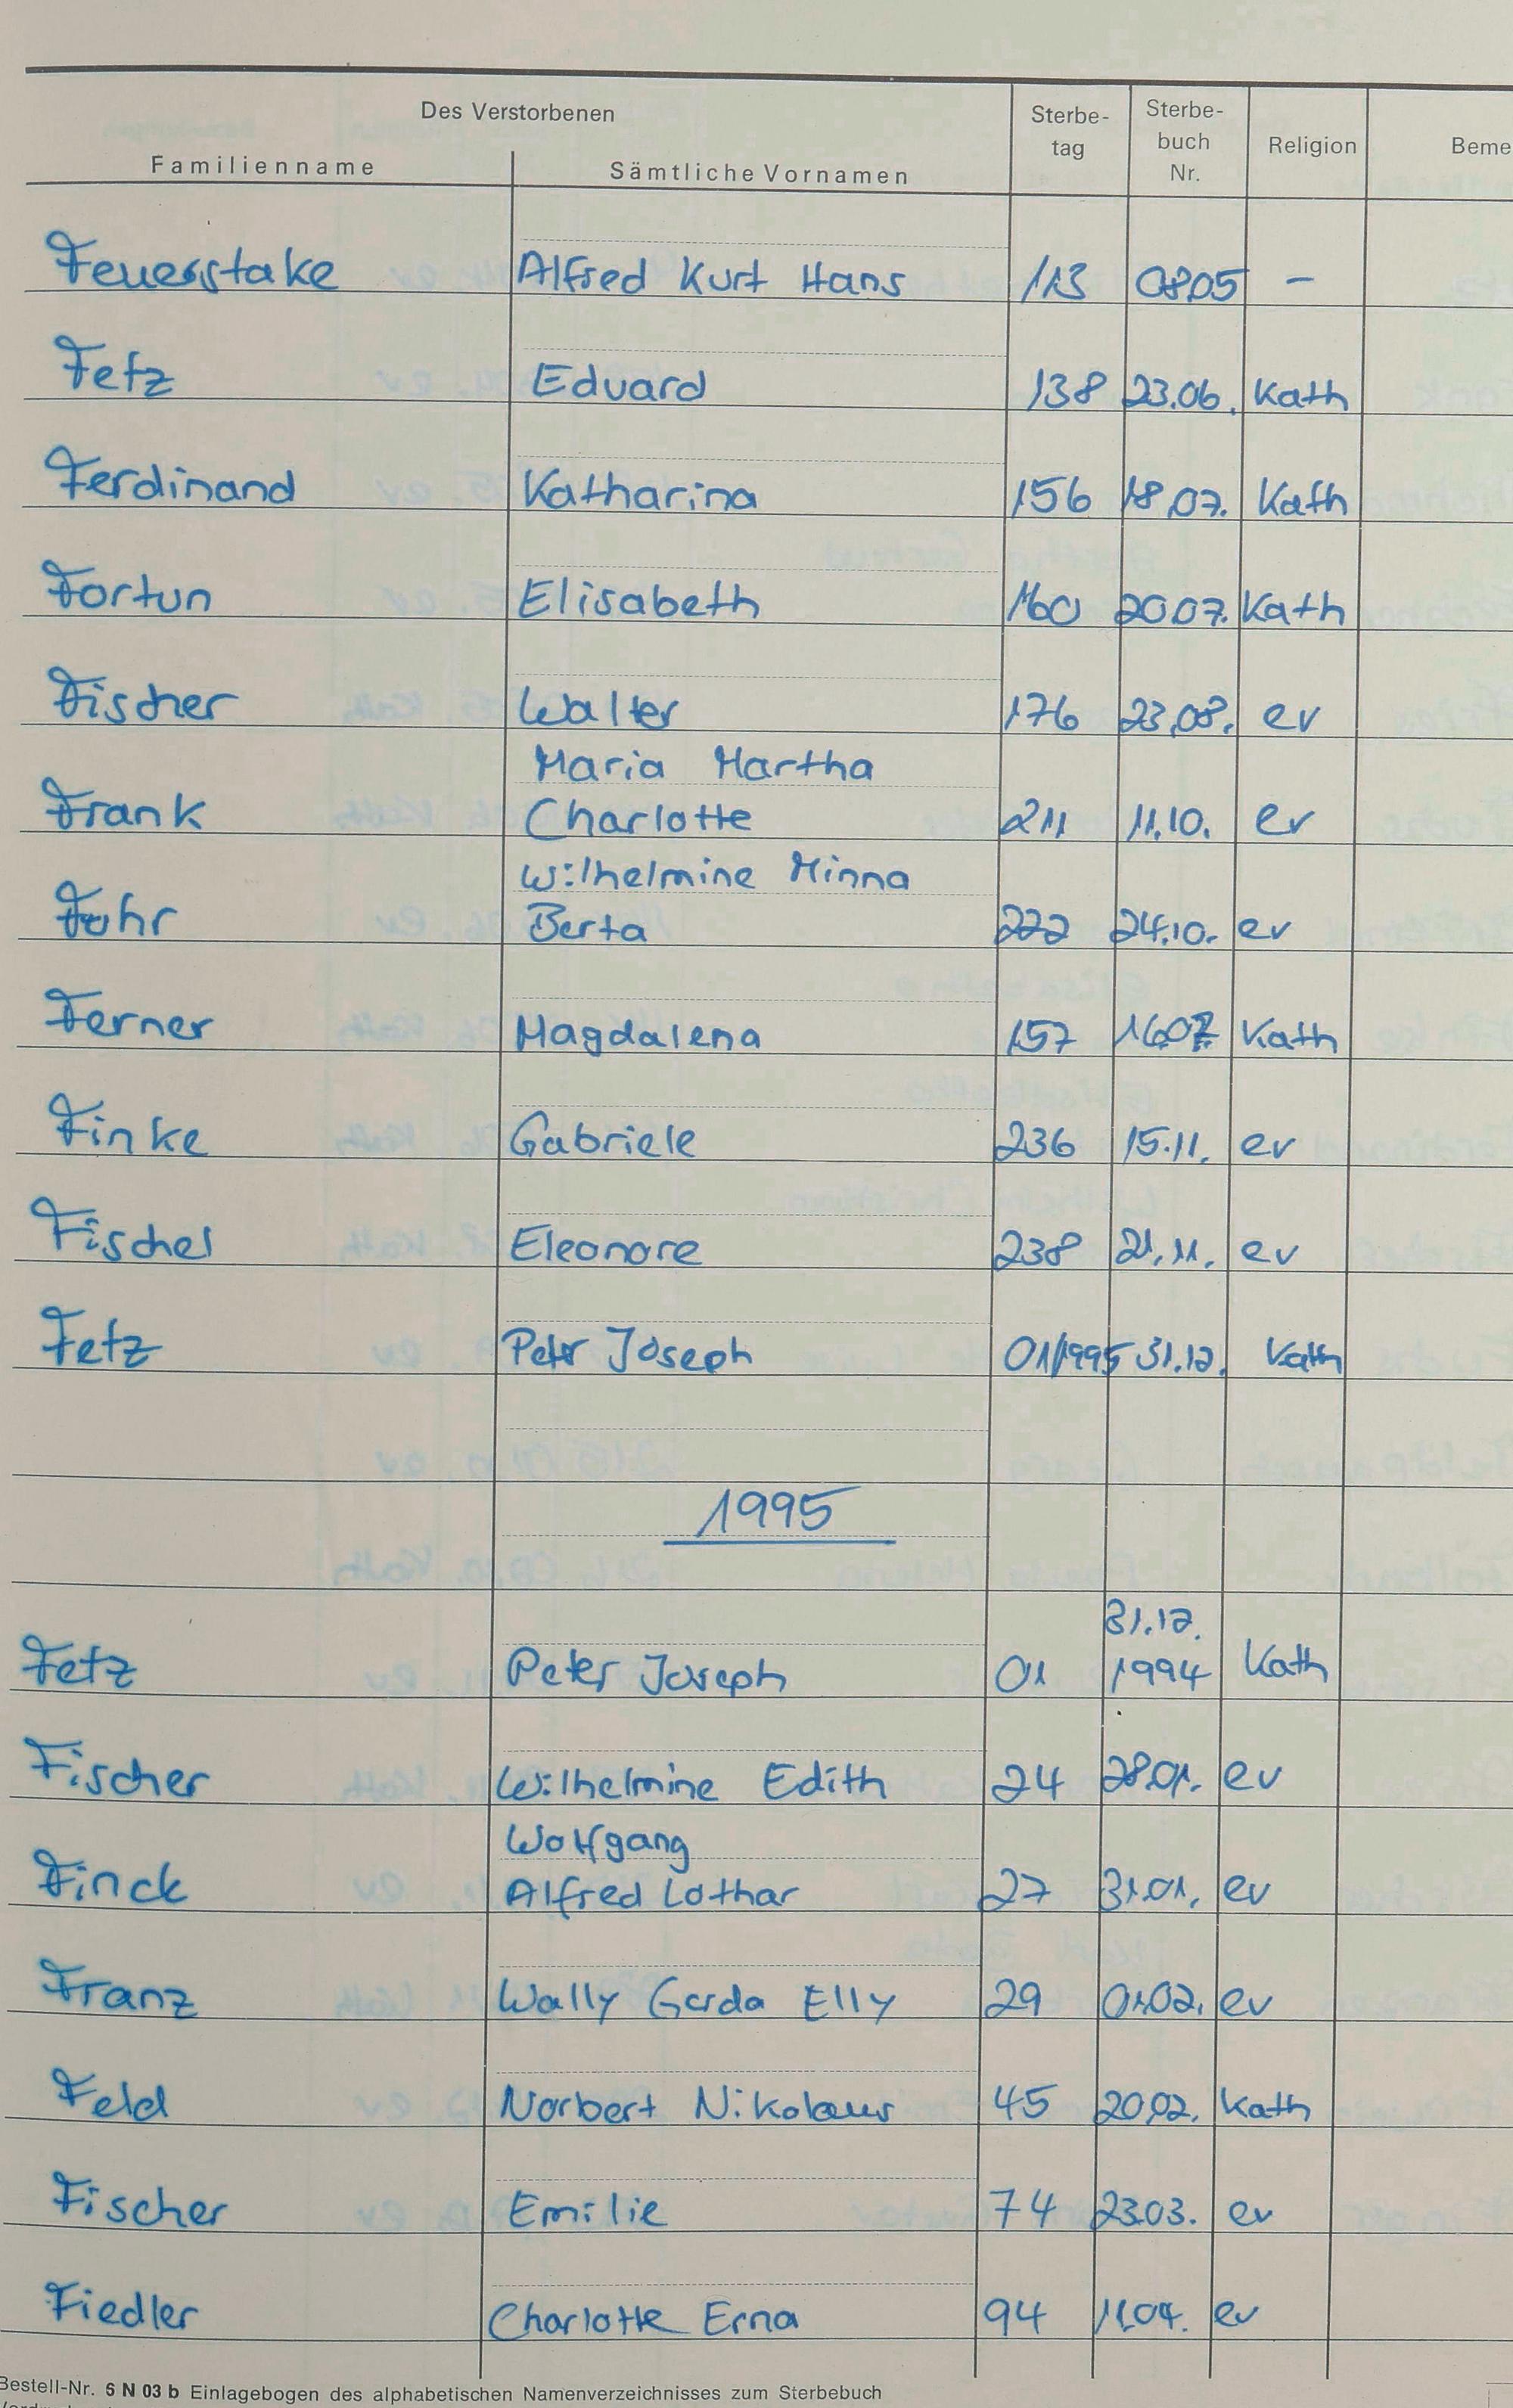 Des Verstorbenen
Sterbe-
tag
Sterbe-
buch
Nr.
Religion
Beme
Familienname
Sämtliche Vornamen
Feuerstake Alfred Kurt Hans 113 08.05 –
Fetz Eduard 138 23.06. Kath
Ferdinand Katharina 156 18.07. Kath
Fortun Elisabeth 160 20.07. Kath
Fischer Walter 176 23.08. ev
Maria Martha
Frank Charlotte 211 11.10. ev
Wilhelmine Minna
Fohr Berta 222 24.10. ev
Ferner Magdalena 157 16.07 Kath
Finke Gabriele 236 15.11. ev
Fischel Eleonore 238 21.11. ev
Fetz Peter Joseph 01/1995 31.12. Kath
1995
31.12.
Fetz Peter Joseph 01 1994 Kath
Fischer Wilhelmine Edith 24 28.01. ev
Wolfgang
Finck Alfred Lothar 27 31.01. ev
Franz Wally Gerda Elly 29 01.02. ev
Feld Norbert Nikolaus 45 20.02. Kath
Fischer Emilie 74 23.03. ev
Fiedler Charlotte Erna 94 11.04. ev
Bestell-Nr. 6 N 03 b Einlagebogen des alphabetischen Namenverzeichnisses zum Sterbebuch